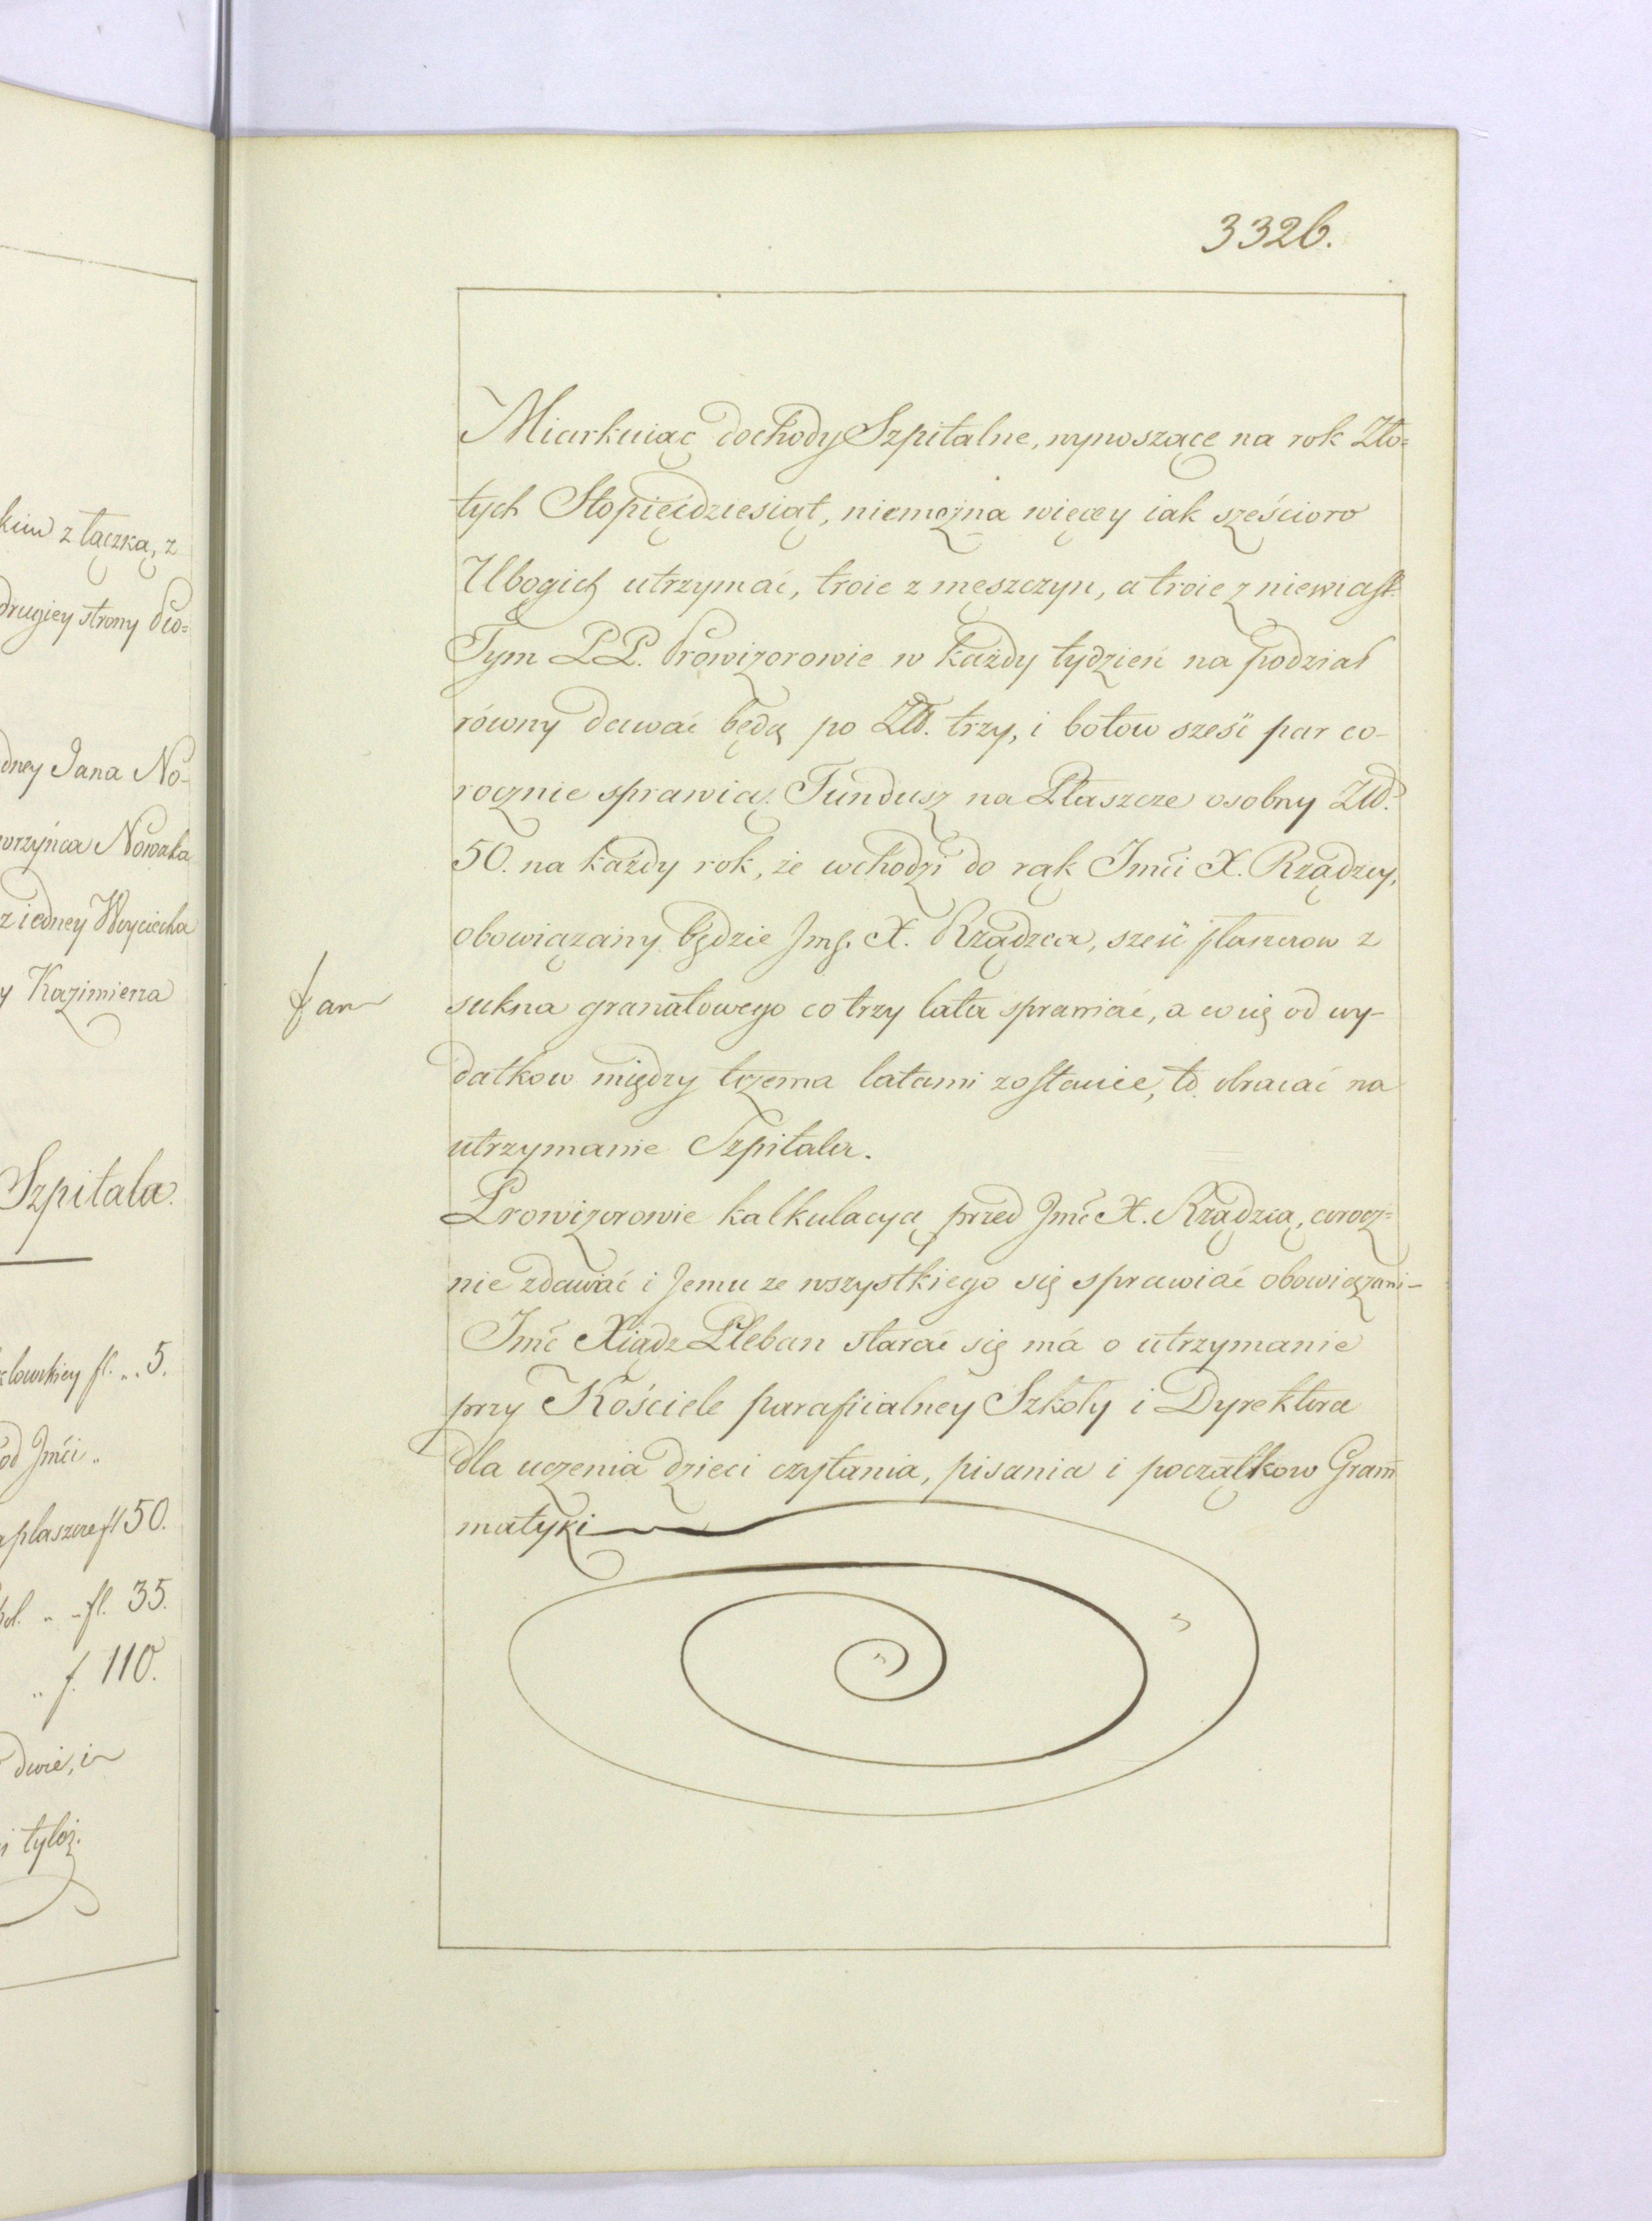 kim z łączką, z
drugiey strony Pio=
dney Jana No-
wrzyńca Nowaka
z iedney Woyciecha
y Kazimierza
Szpitala.
fl. „. 5.
od Jmći „
płaszcze fl 50.
„ „ fl. 35.
„ f. 110.
dwie, i
i tyloż.
3326.
Miarkuiąc dochody Szpitalne, wynoszące na rok Zło=
tych Stopięćdziesiąt, niemożna więcey iak sześcioro
Ubogich utrzymać, troie z męszczyn, a troie z niewiast.
Tym PP. Prowizorowie w każdy tydzień na podział
równy dawać będą po Złł. trzy, i botow sześć par co-
rocznie sprawią. Fundusz na Płaszcze osobny Złł.
50. na każdy rok, że wchodzi do rąk Jmći X. Rządzcy,
obowiązany będzie Jmć. X. Rządzca, sześć płaszczow z
fan
sukna granatowego co trzy lata sprawiać, a co się od wy-
datkow między trzema latami zostanie, to obracać na
utrzymanie Szpitala.
Prowizorowie kalkulacyą przed Jmć X. Rządzcą, corocz=
nie zdawać i Jemu ze wszystkiego się sprawiać obowiązani-
Jmć Xiądz Pleban starać się má o utrzymanie
przy Kościele parafiialney Szkoły i Dyrektora
dla uczenia dzieci czytania, pisania i początkow Gram̄
matyki